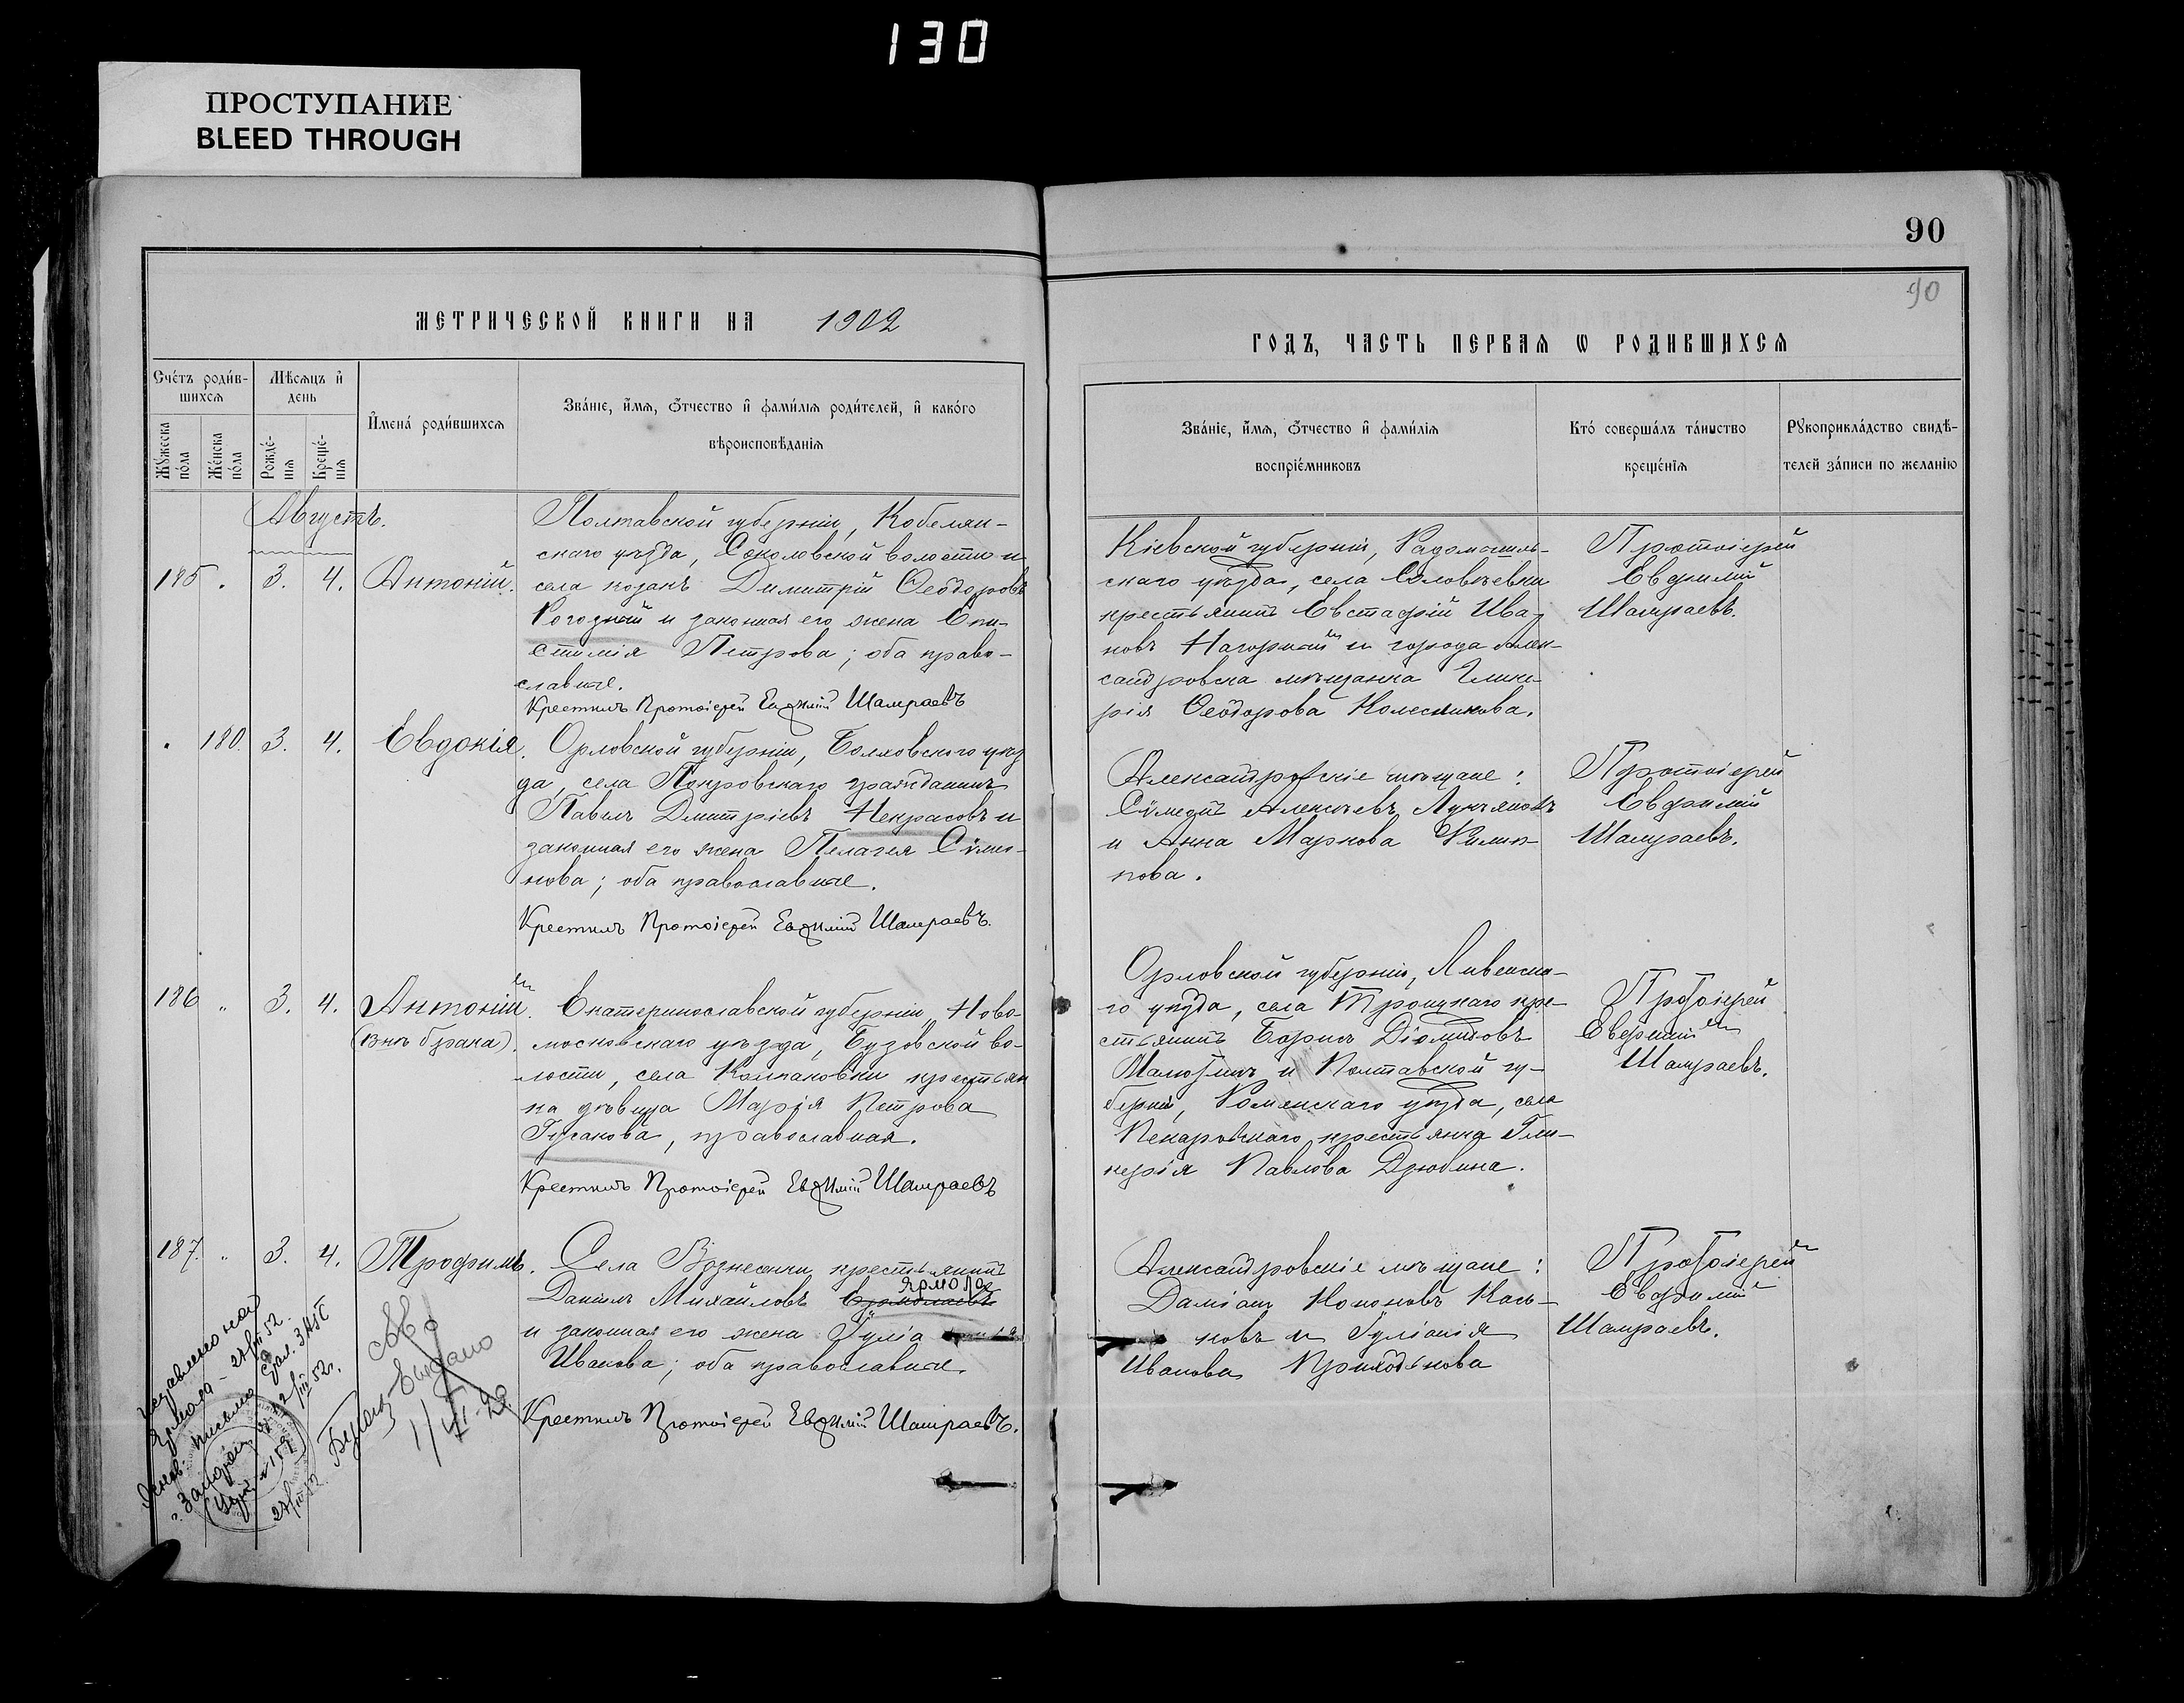 130
ПРОСТУПАНИЕ
BLEED THROUGH
90
90
МЕТРИЧЕСКОЙ КНИГИ НА 1902
ГОДЪ, ЧАСТЬ ПЕРВАЯ Ѡ РОДИВШИХСЯ
Счетъ родив-
шихся
Мѣсяцъ и
день
Мужеска
пола
Женска
пола
Рожде-
нія
Креще-
нія
Имена родившихся
Званіе, имя, отчество и фамилія родителей, и какого
вѣроисповѣданія
Званіе, имя, отчество и фамилія
воспріемниковъ
Кто совершалъ таинство
крещенія
Рукоприкладство свидѣ-
телей записи по желанію
Августъ.
185 . 3. 4. Антоній.
Полтавской губерніи, Кобеляк-
скаго уѣзда, Соколовской волости и
села козакъ Димитрій Ѳеодоровъ
и законная его жена Епи-
стимія Петрова; оба право-
славные.
Крестилъ Протоіерей Евѳимій Шамраевъ
Кіевской губерніи, Радомысль-
скаго уѣзда, села Соловьевки
крестьянинъ Евстафій Ива-
новъ Нагорный и города Алек-
сандровска мѣщанка Глике-
рія Ѳеодорова Колесникова.
Протоіерей
Евфимій
Шамраевъ.
. 180. 3. 4. Евдокія.
Орловской губерніи, Болховского уѣз
да, села Покровскаго гражданинъ
Павелъ Дмитріевъ Некрасовъ и
законная его жена Пелагея Сѵмео-
нова; оба православные.
Крестилъ Протоіерей Евѳимій Шамраевъ.
Александровскіе мѣщане:
Сѵмеонъ Алексѣевъ Лукьяновъ
и Анна Маркова Филип-
пова.
Протоіерей
Евфимій
Шамраевъ.
186 " 3. 4. Антоній.
(внѣ брака).
Екатеринославской губерніи, Ново-
московскаго уѣзда, Бузовской во-
лости, села Колпаковки крестьян
ка дѣвица Марія Петрова
Гусакова, православная.
Крестилъ Протоіерей Евѳимій Шамраевъ
Орловской губерніи, Ливенска-
го уѣзда, села Троицкаго кре-
стьянинъ Борисъ Діомидовъ
и Полтавской гу-
берніи, Роменскаго уѣзда, села
крестьянка Гли-
керія Павлова Дзюбина.
Протоіерей
Евфимій
Шамраевъ.
187. " 3. 4. Трофимъ.
Села Вознесенки крестьянинъ
Ярмола
Даніилъ Михайловъ Ермолаевъ
и законная его жена Іулія
Иванова; оба православные.
Крестилъ Протоіерей Евѳимій Шамраевъ.
Александровскіе мѣщане:
Даміанъ Кононовъ
новъ и Іуліанія
Иванова Приходькова
Протоіерей
Евфимій
Шамраевъ.
Исправлено на
Ярмола
письма